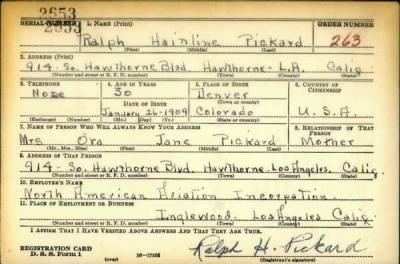 2653
SERIAL NUMBER 2653 1. NAME (Print) ORDER NUMBER
Ralph Hainline Pickard 263
(First) (Middle) (Last)
2. ADDRESS (Print)
914- So. Hawthorne Blvd. Hawthorne- L.A. Calif.
(Number and street or R. F. D. number) (Town) (County) (State)
3. TELEPHONE 4. AGE IN YEARS 5. PLACE OF BIRTH 6. COUNTRY OF CITIZENSHIP
None 30 Denver
DATE OF BIRTH (Town or county)
January 26-1909 Colorado U.S.A.
(Exchange) (No.) (Mo.) (Day) (Yr.) (State or country)
7. NAME OF PERSON WHO WILL ALWAYS KNOW YOUR ADDRESS 8. RELATIONSHIP OF THAT PERSON
Mrs Ora Jane Pickard Mother
(Mr., Mrs., Miss) (First) (Middle) (Last)
9. ADDRESS OF THAT PERSON
914. So. Hawthorne Blvd. Hawthorne- Los Angeles. Calif.
(Number and street or R. F. D. number) (Town) (County) (State)
10. EMPLOYER'S NAME
North American Aviation Incorpation.
11. PLACE OF EMPLOYMENT OR BUSINESS
Inglewood. Los Angeles Calif.
(Number and street or R. F. D. number) (Town) (County) (State)
I AFFIRM THAT I HAVE VERIFIED ABOVE ANSWERS AND THAT THEY ARE TRUE.
REGISTRATION CARD
D. S. S. Form 1 (over) 16-17105 Ralph H. Pickard
(Registrant's signature)